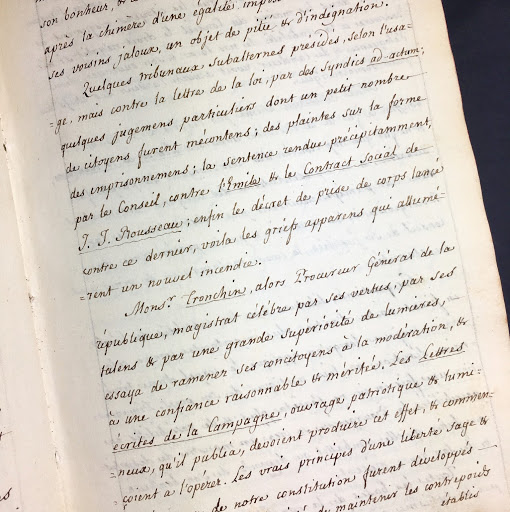 son bonheur, &
après la chimère d'une égalité
ses voisins jaloux, un objet de pitié & d'indignation.
Quelques tribunaux subalternes présidés, selon l'usa-
=ge, mais contre la lettre de la loi, par des Syndics ad-actum;
quelques jugemens particuliers dont un petit nombre
de citoyens furent mécontens; des plaintes sur la forme
des imprisonnemens; la sentence rendue précipitamment,
par le Conseil, contre l'Emile & le Contract Social de
J. J. Rousseau; enfin le décret de prise de corps lancé
contre ce dernier, voila les griefs apparens qui allumé-
=rent un nouvel incendie.
Monsr. Tronchin, alors Procureur Général de la
république, magistrat célébre par ses vertus, par ses
talens & par une grande supériorité de lumières,
essaya de ramener ses concitoyens à la modération, &
à une confiance raisonnable & méritée. Les Lettres
écrites de la Campagne, ouvrage patriotique & lumi-
=neux, qu'il publia, devoient produire cet effet, & commen-
çoient a l'operer. Les vrais principes d'une liberté sage &
de notre constitution furent développés
de maintenir les contrepoids
établis